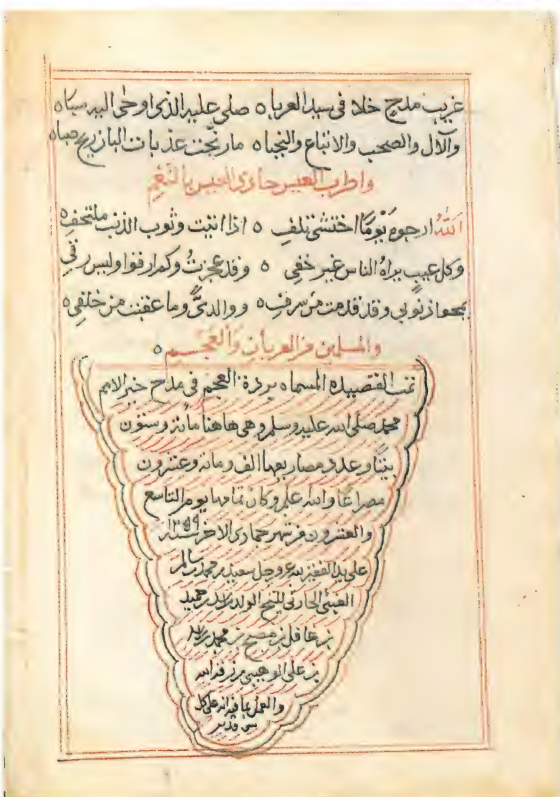 غريب مدح خلا في سيد العرباه صلى عليه الذي اوحى اليه سباه
والآل والصحب والاتباع والنجباه مارنحت عذبات البان ريح صباه
واطرب العيس حادي العيس بالنغم
الله ارجوه يوما اختشي تلفي ٥ اذا اتيت وثوب الذنب ملتحفي٥
وكل عيب يراه الناس غير خفي ٥ وقد عجزت وكم ارفوا وليس رفي
بمحو اذنوبي وقد قدمت من سرف٥ ووالديّ وما عقبت من خلفي٥
والمسلمين من العربان والعجم٥
تمت القصيدة المسماه بردة العجم في مدح خير الامم
محمد صلى الله عليه وسلم وهي هاهنا مائة وستون
بيتا وعدد مصاريعها الف ومائة وعشرون
مصراعا والله علم وكان تمامها يوم التاسع
والعشرون من شهر جمادى الاخر سنة ١٢٥٩
على يد الفقير لله عز وجل سعيد بن محمد بن سالم
الغيثي الحارثي للشيخ الولد زيد بن حميد
بن غافل بن مصبح بن محمد بن زيد
بن علي الوهيبي مرزقه الله
والعمل بما فيه انه على كل
شي قدير